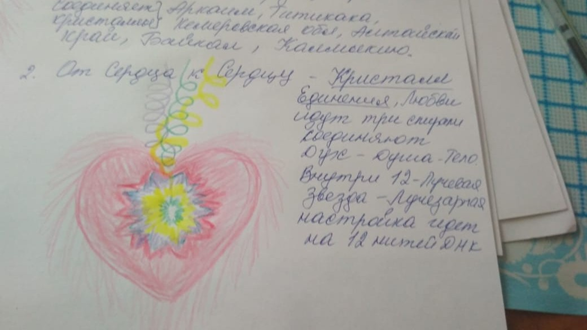 соединяет Аркаим, Титикака,
кристаллы Кемеровская обл, Алтайский
край, Байкал, Калмыкию.
2. От Сердца к Сердцу - Кристалл
Единения, Любви
идут три спирали
соединяют
Дух - Душа - Тело.
Внутри 12-Лучевая
Звезда - Лучезарная
настройка идет
на 12 нитей ДНК